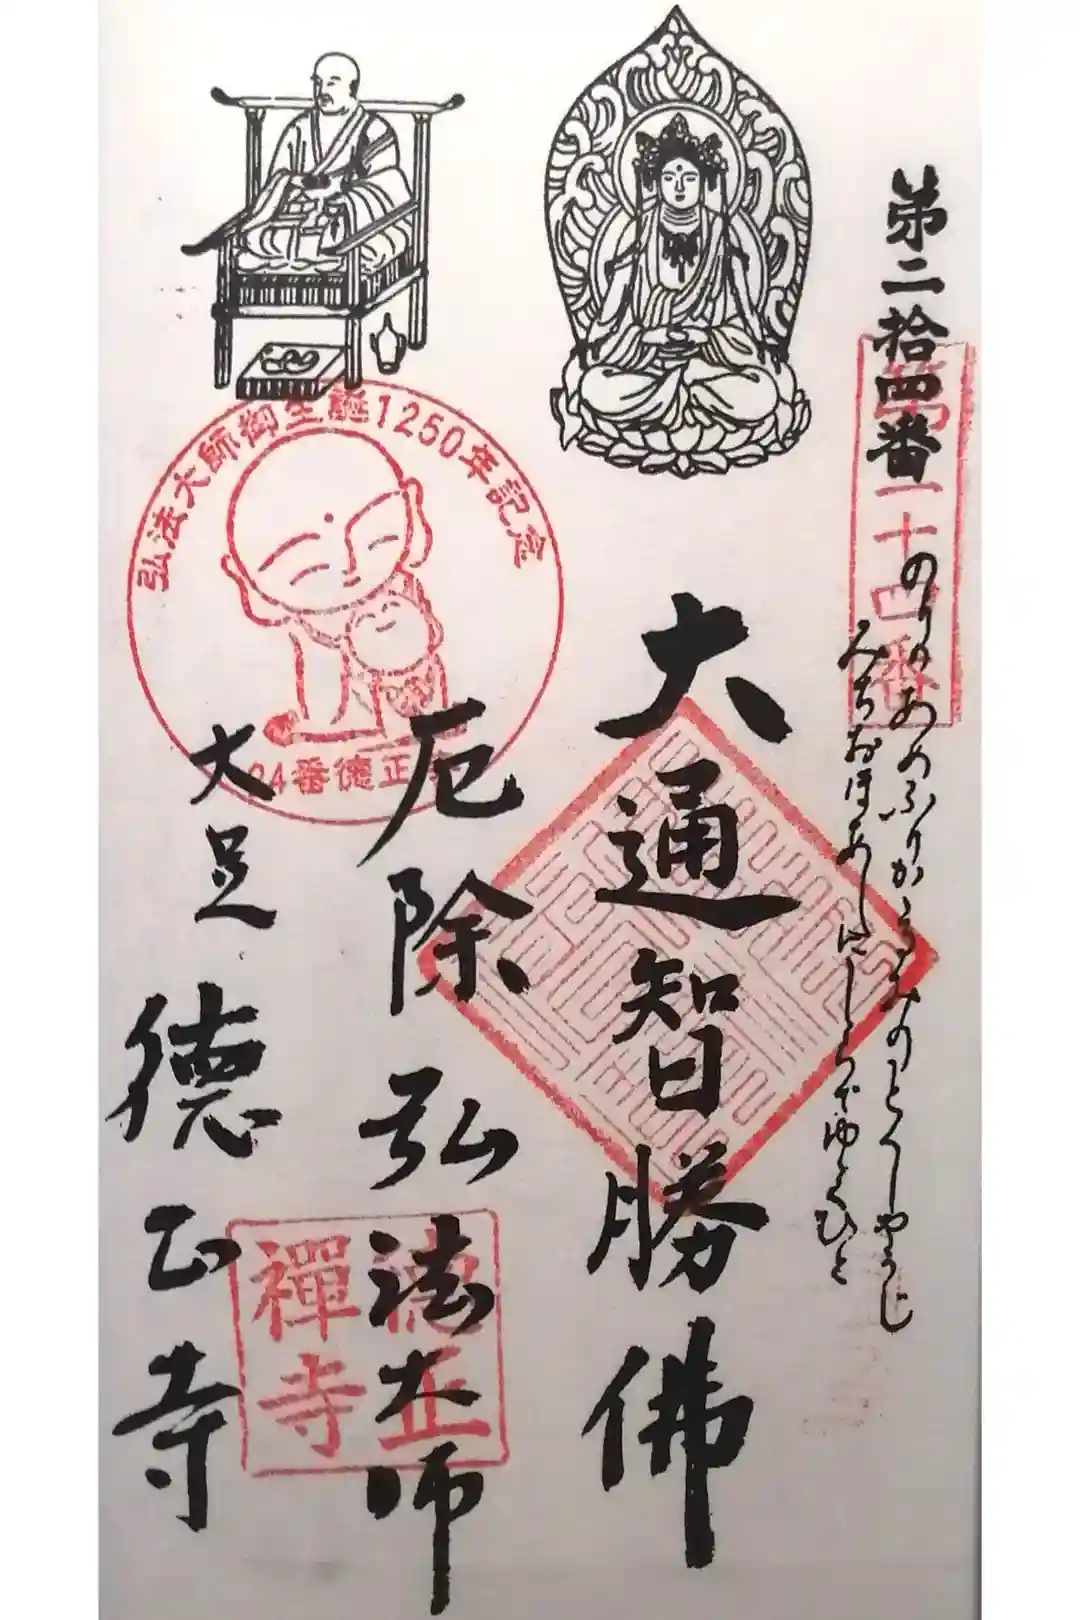 第二拾四番
第二十四番
のりのあめふりかかるみのとくしやうじ
みちおほあしにしらでゆくひと
大通智勝佛
厄除弘法大師
大足 德正寺
弘法大師御生誕1250年記念
24番徳正寺
德正
禪寺